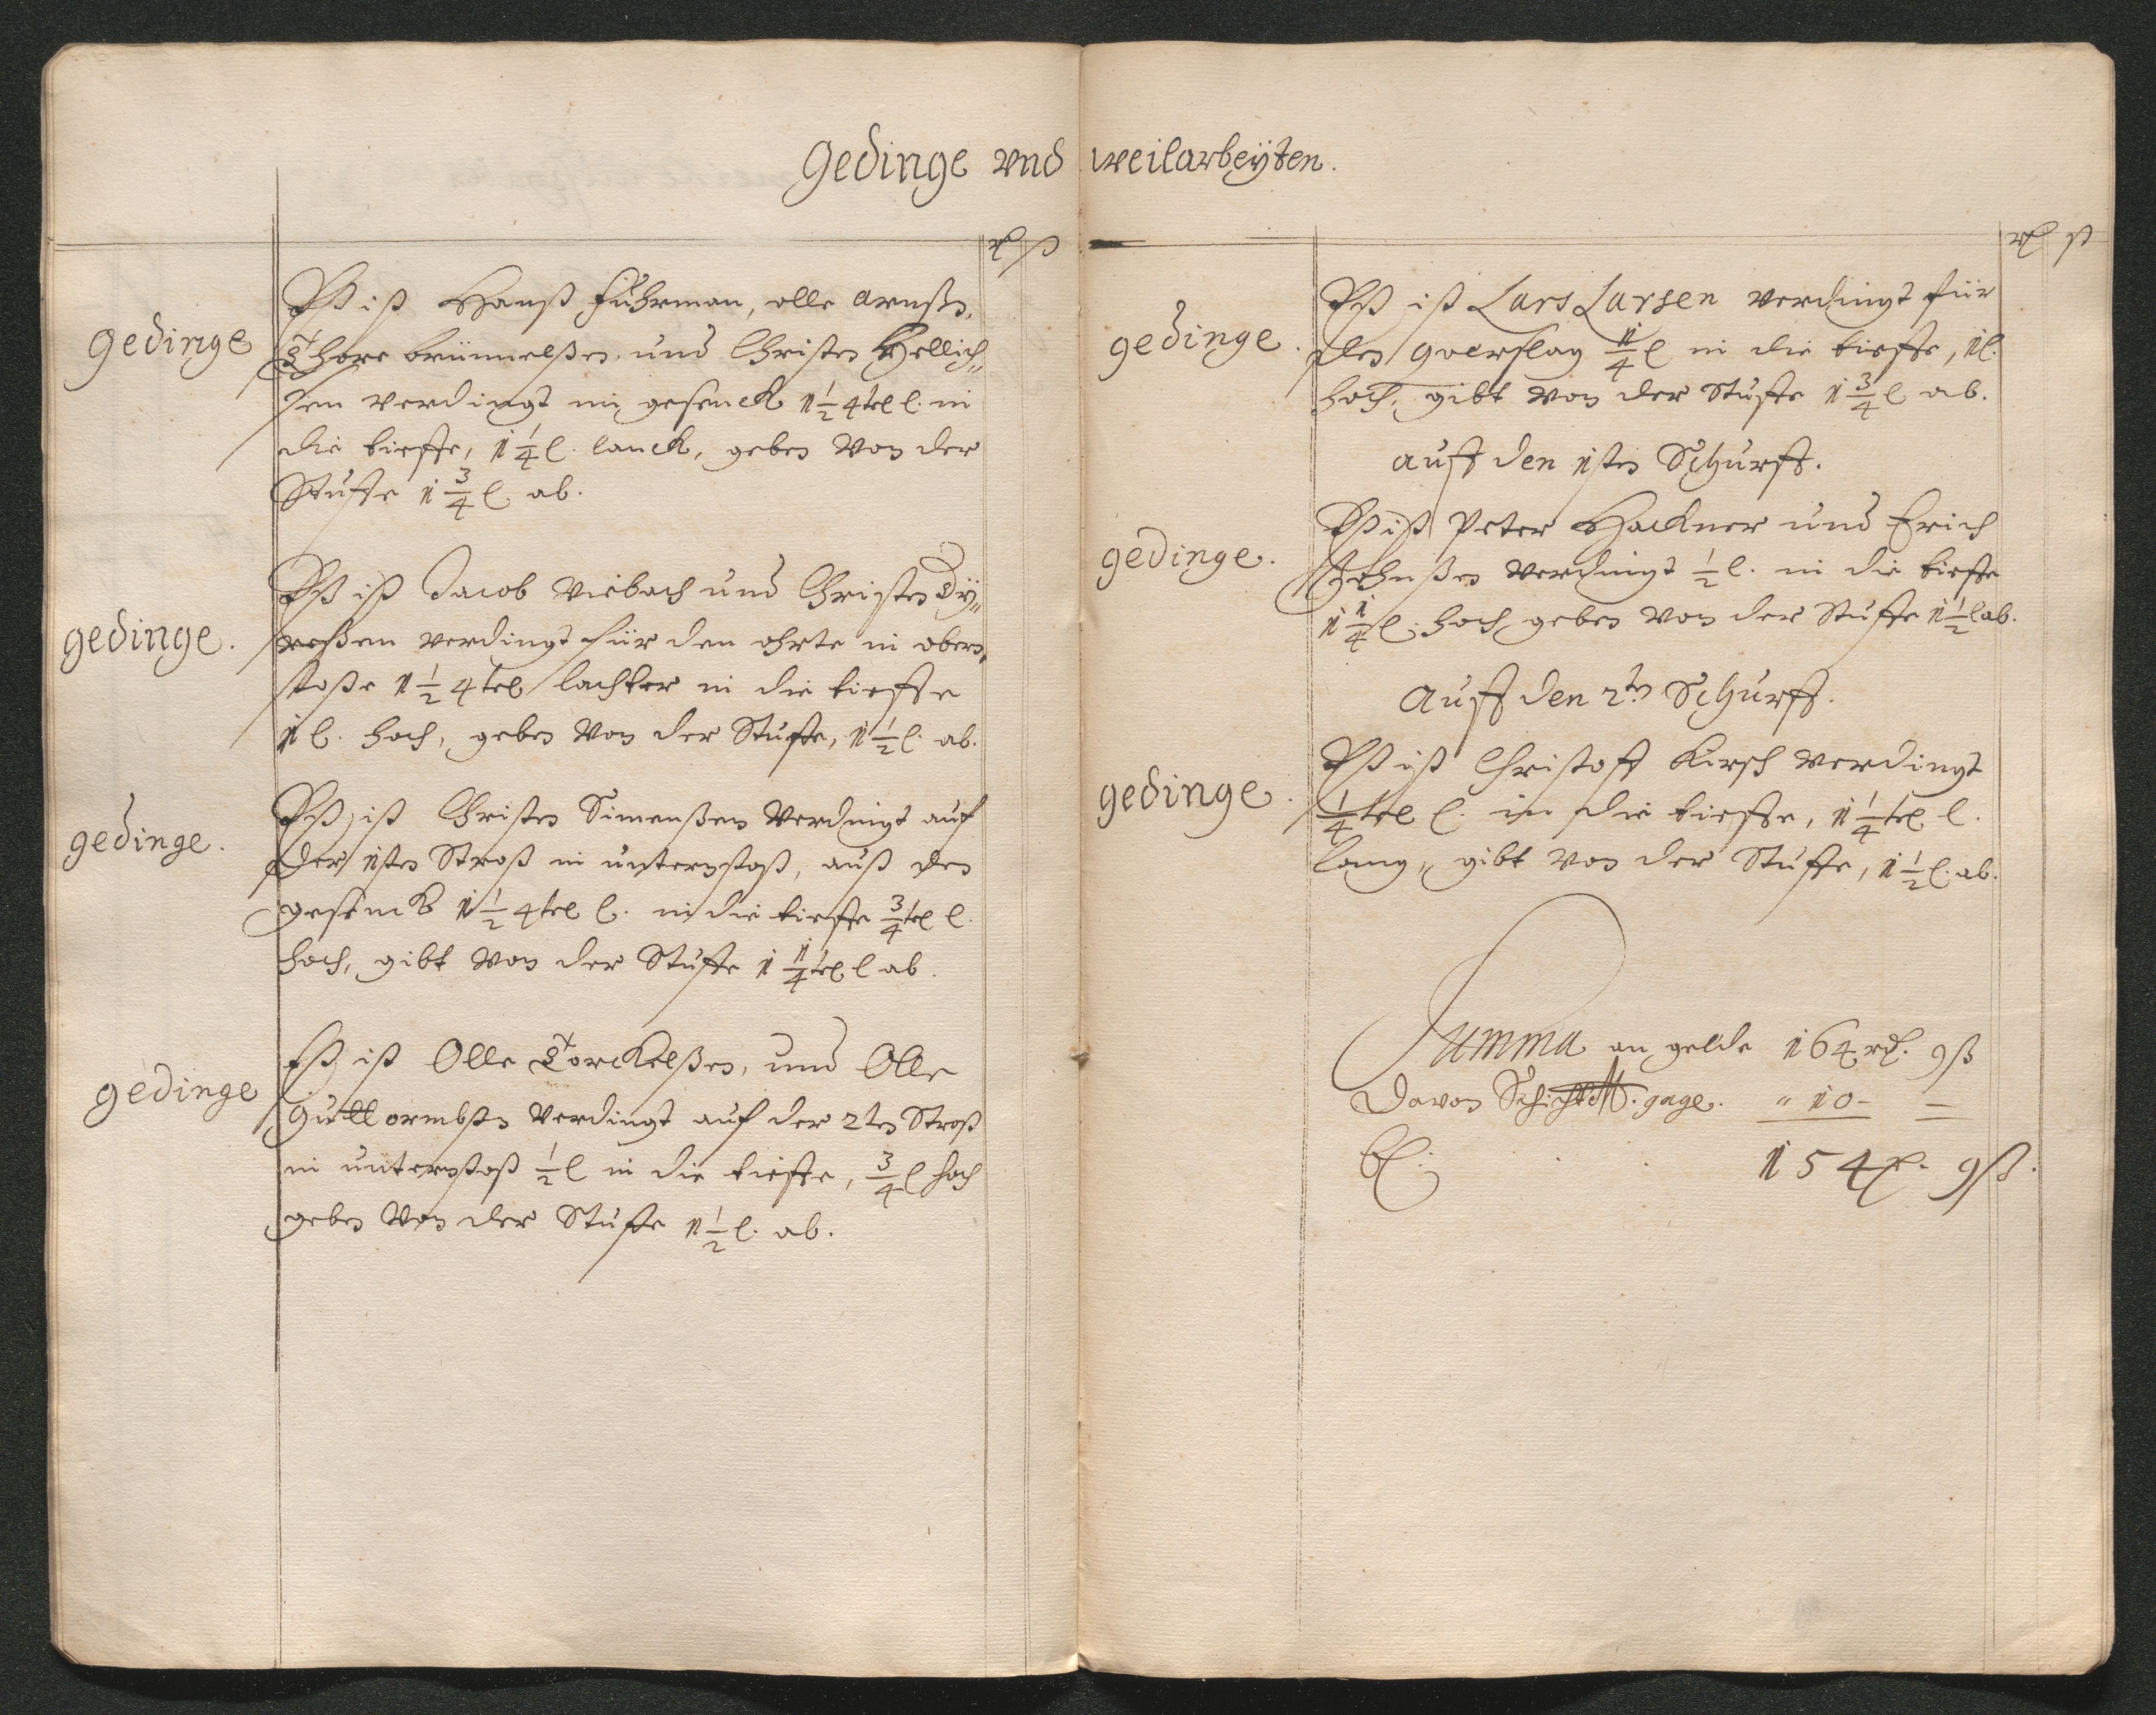 Gedinge vnd weilarbeÿten.
rd ß
gedinge
Eß ist Hanß Fuhrman, olle arnßen,
Thore brünnelßen, und Christen Hellich„
sen verdingt im gesenck 1 1/2 4tel l. in
die tieffe, 1 1/4 l. lanck, geben von der
Stuffe 1 3/4 l ab.
gedinge.
Eß ist Jacob Viebach und Christen Dÿ„
reßen verdingt für den ohrte in obern„
stoße 1 1/2 4tel lachter in die tieffe
1 l. hoch, geben von der Stuffe, 1 1/2 l. ab.
gedinge.
Eß ist Christen Simenßen verdingt auf
der 1sten Stroß in unternstoß, auß den
gesenck 1 1/2 4tel l. in die tieffe 3/4tel l.
hoch, gibt von der Stuffe 1 1/4tel l ab.
gedinge
Eß ist Olle Torckelßen, und Olle
Guttormbßen verdingt auf der 2ten Stroß
in unternstoß 1/2 l in die tieffe, 3/4 l hoch
geben von der Stuffe 1 1/2 l. ab.
rd ß
gedinge.
Eß ist Lars Larsen verdingt für
den querslag 1/4 l in die tieffe, 1 l.
hoch, gibt von der Stuffe 1 3/4 l ab.
auff den 1sten Schurff.
gedinge.
Eß ist Peter Hackner und Erich
Johnßen verdingt 1/2 l. in die tieffe
1 1/4 l. hoch geben von der Stuffe 1 1/2 l ab.
Auff den 2ten Schurff.
gedinge.
Eß ist Christoff Kirsch verdingt
1/4tel l. in die tieffe, 1 1/4tel l.
lang, gibt von der Stuffe, 1 1/2 l. ab.
Summa an gelde 164 rd. 9 ß
Davon Schichtm. gage. „ 10 - =
bl: . . 154 rd. 9 ß.